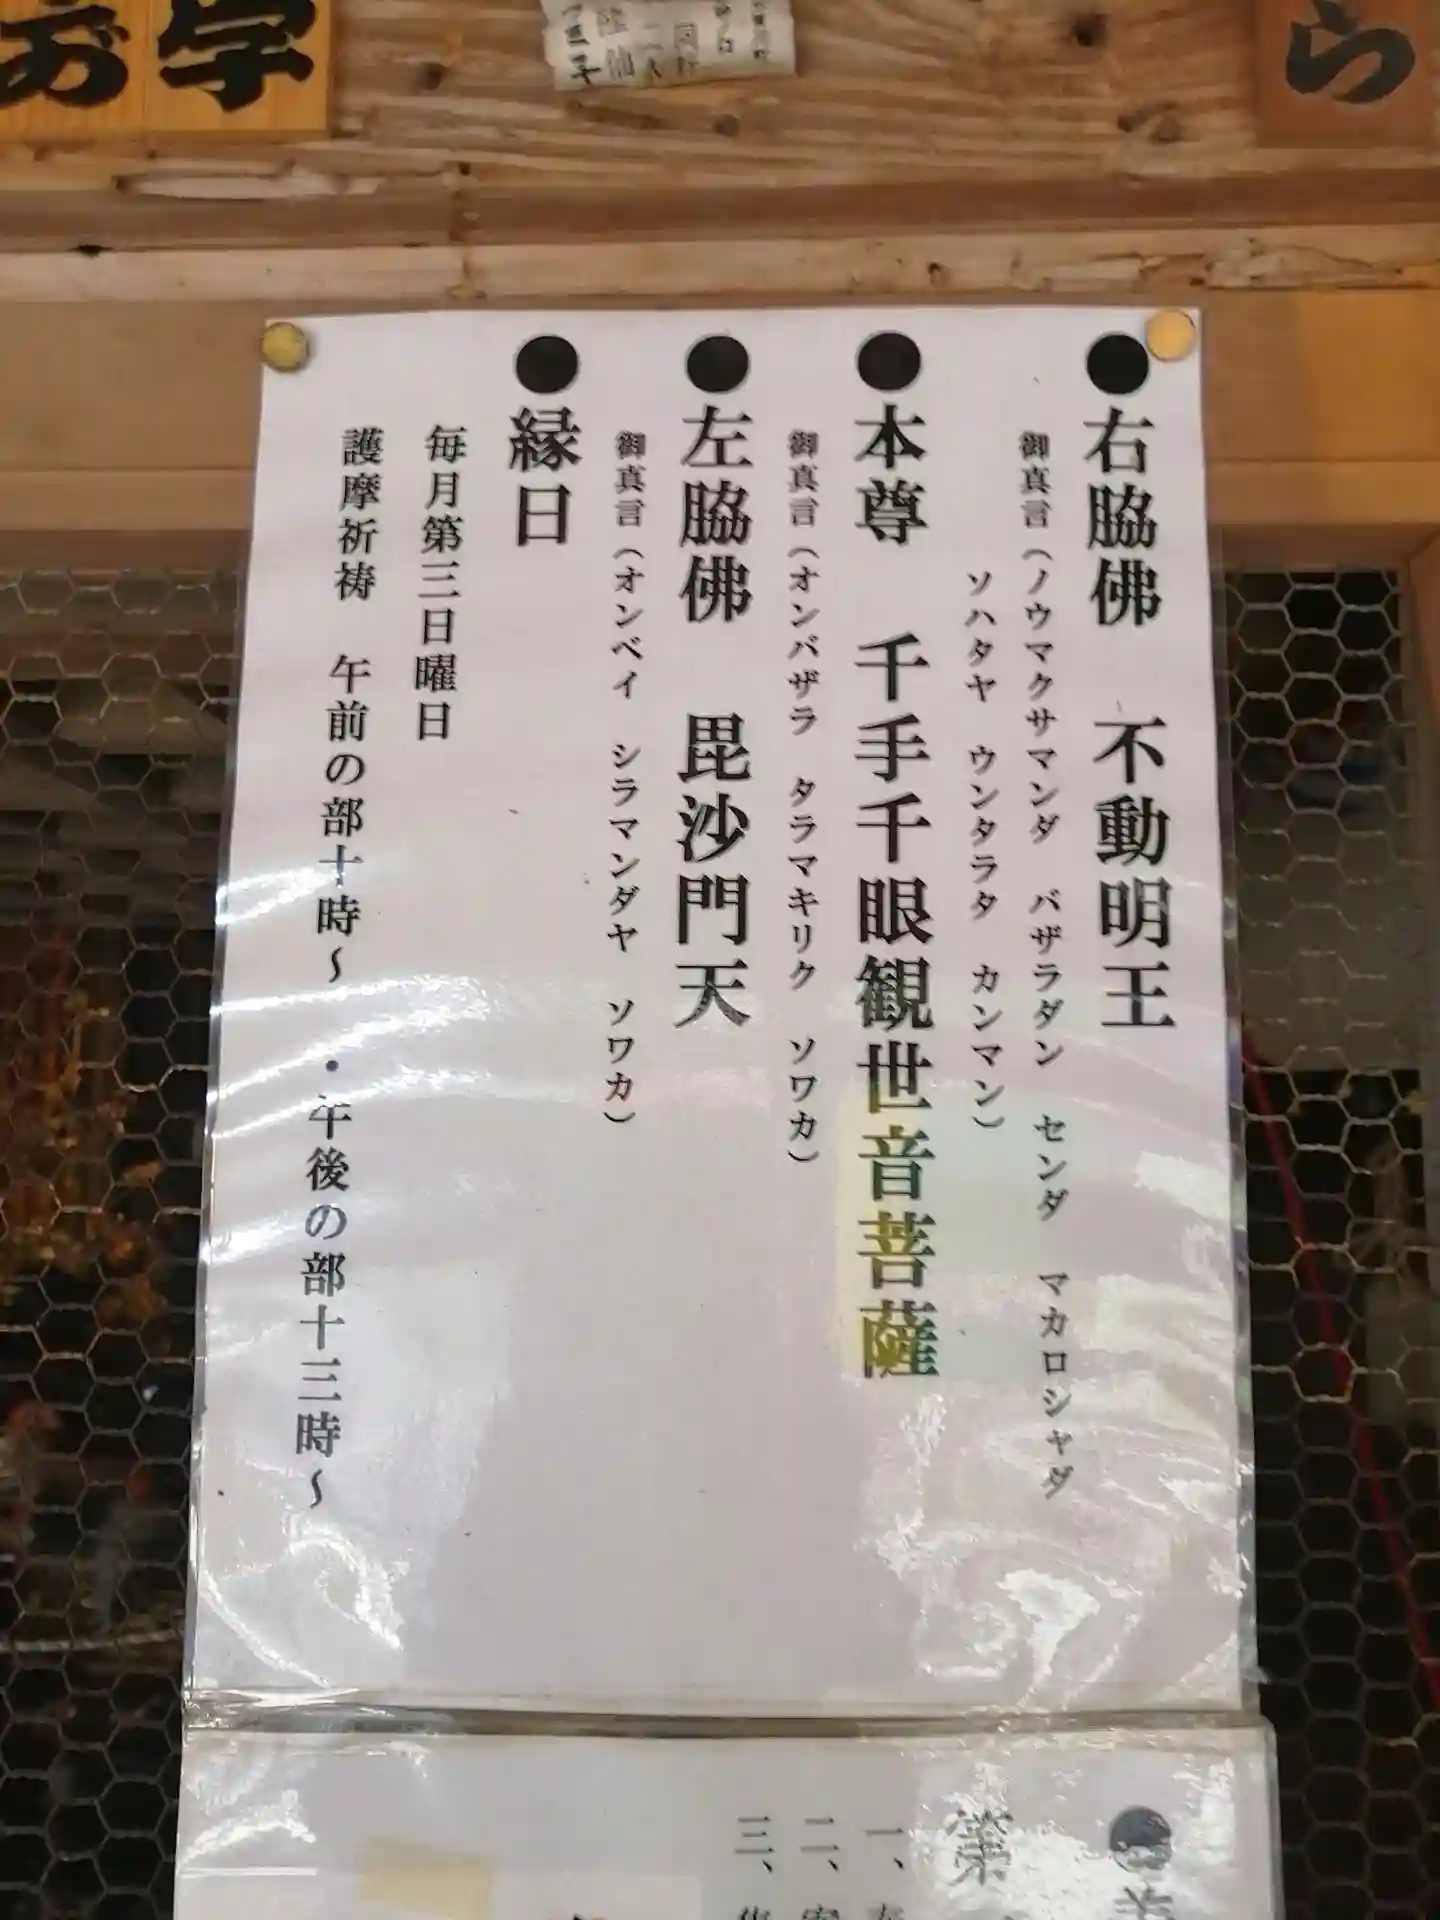 お字
ら
●右脇佛 不動明王
御真言(ノウマクサマンダ バザラダン センダ マカロシャダ
ソハタヤ ウンタラタ カンマン)
●本尊 千手千眼観世音菩薩
御真言(オンバザラ タラマキリク ソワカ)
●左脇佛 毘沙門天
御真言(オンベイ シラマンダヤ ソワカ)
●縁日
毎月第三日曜日
護摩祈祷 午前の部十時〜 ・午後の部十三時〜
●
第
一、
二、
三、